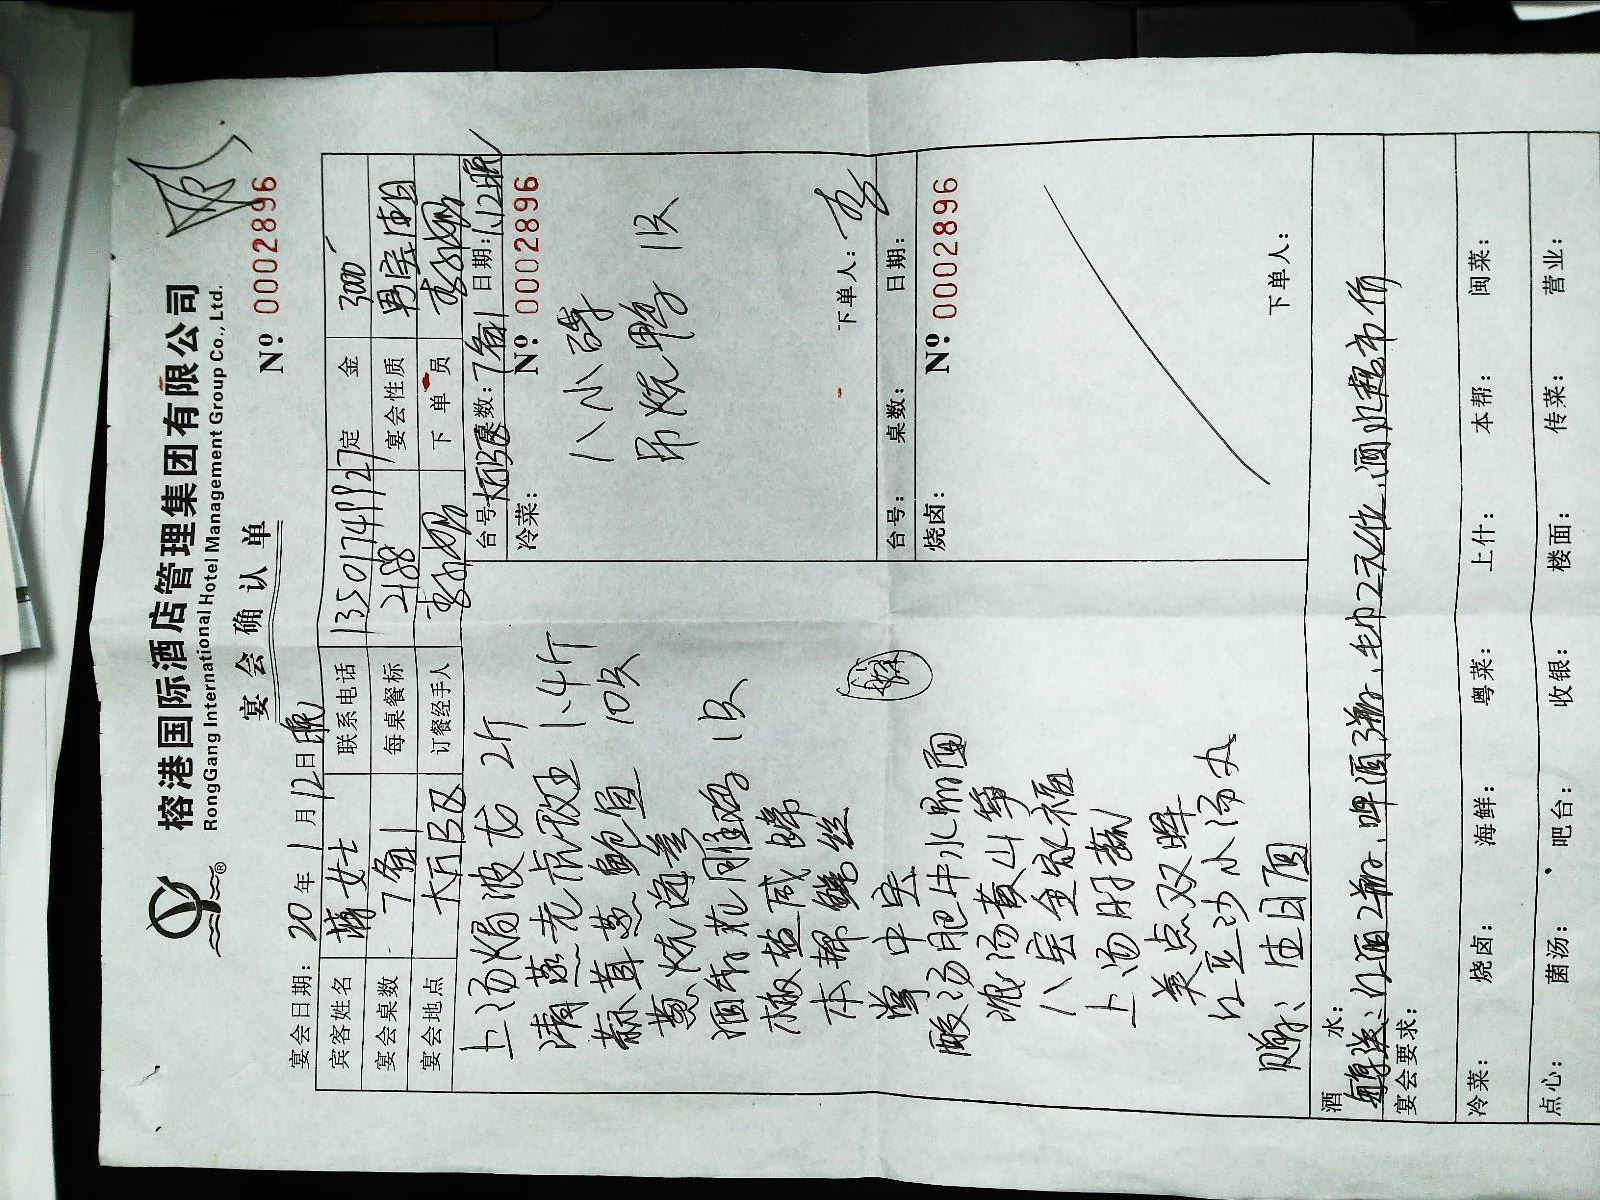 榕港国际酒店管理集团有限公司
RongGang International Hotel Management Group Co., Ltd.
宴会确认单
№ 0002896
宴会日期: 20 年 1 月 12 日 晚
宾客姓名 蒋女士 联系电话 13501749927 定金 3000
宴会桌数 7 每桌餐标 2188 宴会性质
宴会地点 大厅B区 订餐经手人 下单员
上汤焗波龙 2斤
清蒸老虎斑 1.4斤
蒜茸蒸鲍鱼 10只
葱烧海参
1只
椒盐
本帮鳝丝
酸汤肥牛水晶面
浓汤黄山笋
八宝全家福
上汤时蔬
美点双辉
红豆沙小汤丸
赠: 生日面
台号: 大厅B区 桌数: 7 日期: 1.12晚
冷菜: № 0002896
八小碟
吊烧鸭 1只
下单人:
台号: 桌数: 日期:
烧卤: № 0002896
下单人:
酒水:
赠送: 红酒2瓶、啤酒3瓶、毛巾2元/位、酒水超市价
宴会要求:
冷菜: 烧卤: 海鲜: 粤菜: 上什: 本帮: 闽菜:
点心: 菌汤: 吧台: 收银: 楼面: 传菜: 营业: